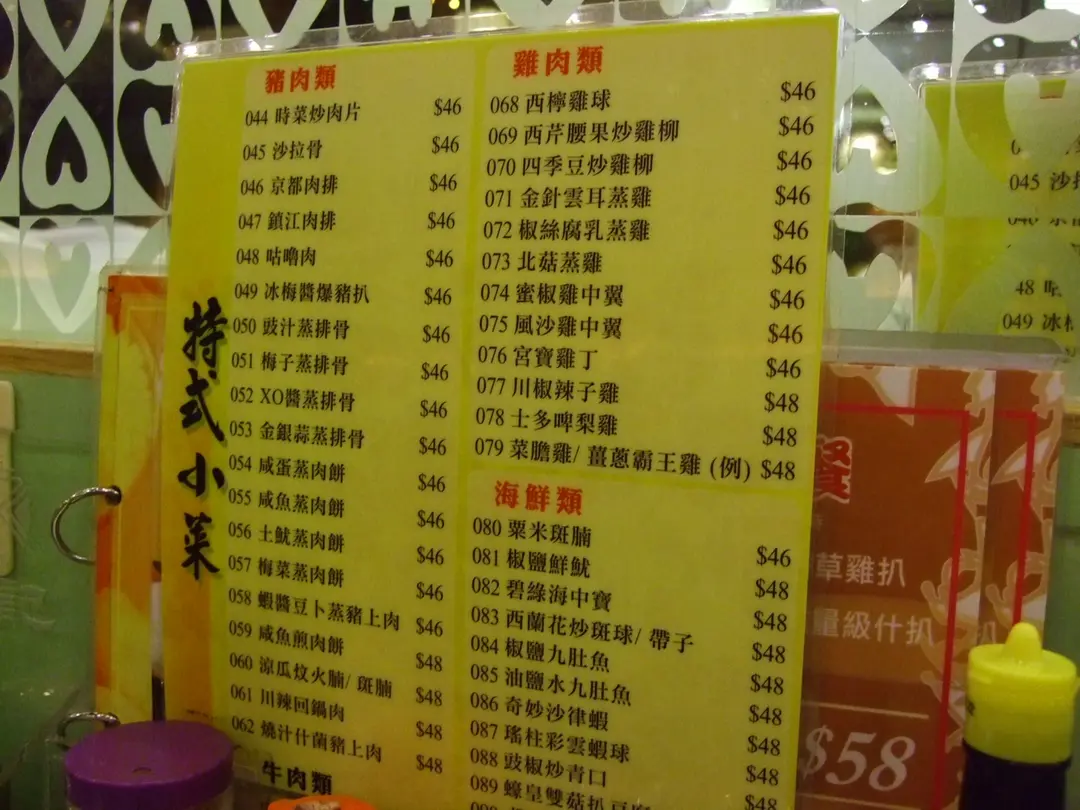 特式小菜
豬肉類
044 時菜炒肉片 $46
045 沙拉骨 $46
046 京都肉排 $46
047 鎮江肉排 $46
048 咕嚕肉 $46
049 冰梅醬爆豬扒 $46
050 豉汁蒸排骨 $46
051 梅子蒸排骨 $46
052 XO醬蒸排骨 $46
053 金銀蒜蒸排骨 $46
054 咸蛋蒸肉餅 $46
055 咸魚蒸肉餅 $46
056 土魷蒸肉餅 $46
057 梅菜蒸肉餅 $46
058 蝦醬豆卜蒸豬上肉 $46
059 咸魚煎肉餅 $48
060 涼瓜炆火腩/ 斑腩 $48
061 川辣回鍋肉 $48
062 燒汁什菌豬上肉 $48
牛肉類
雞肉類
068 西檸雞球 $46
069 西芹腰果炒雞柳 $46
070 四季豆炒雞柳 $46
071 金針雲耳蒸雞 $46
072 椒絲腐乳蒸雞 $46
073 北菇蒸雞 $46
074 蜜椒雞中翼 $46
075 風沙雞中翼 $46
076 宮寶雞丁 $46
077 川椒辣子雞 $48
078 士多啤梨雞 $48
079 菜膽雞/ 薑蔥霸王雞 (例) $48
海鮮類
080 粟米斑腩 $46
081 椒鹽鮮魷 $48
082 碧綠海中寶 $48
083 西蘭花炒斑球/ 帶子 $48
084 椒鹽九肚魚 $48
085 油鹽水九肚魚 $48
086 奇妙沙律蝦 $48
087 瑤柱彩雲蝦球 $48
088 豉椒炒青口 $48
089 蠔皇雙菇扒豆腐
045 沙
48
049 冰
餐
草雞扒
量級什扒
$58